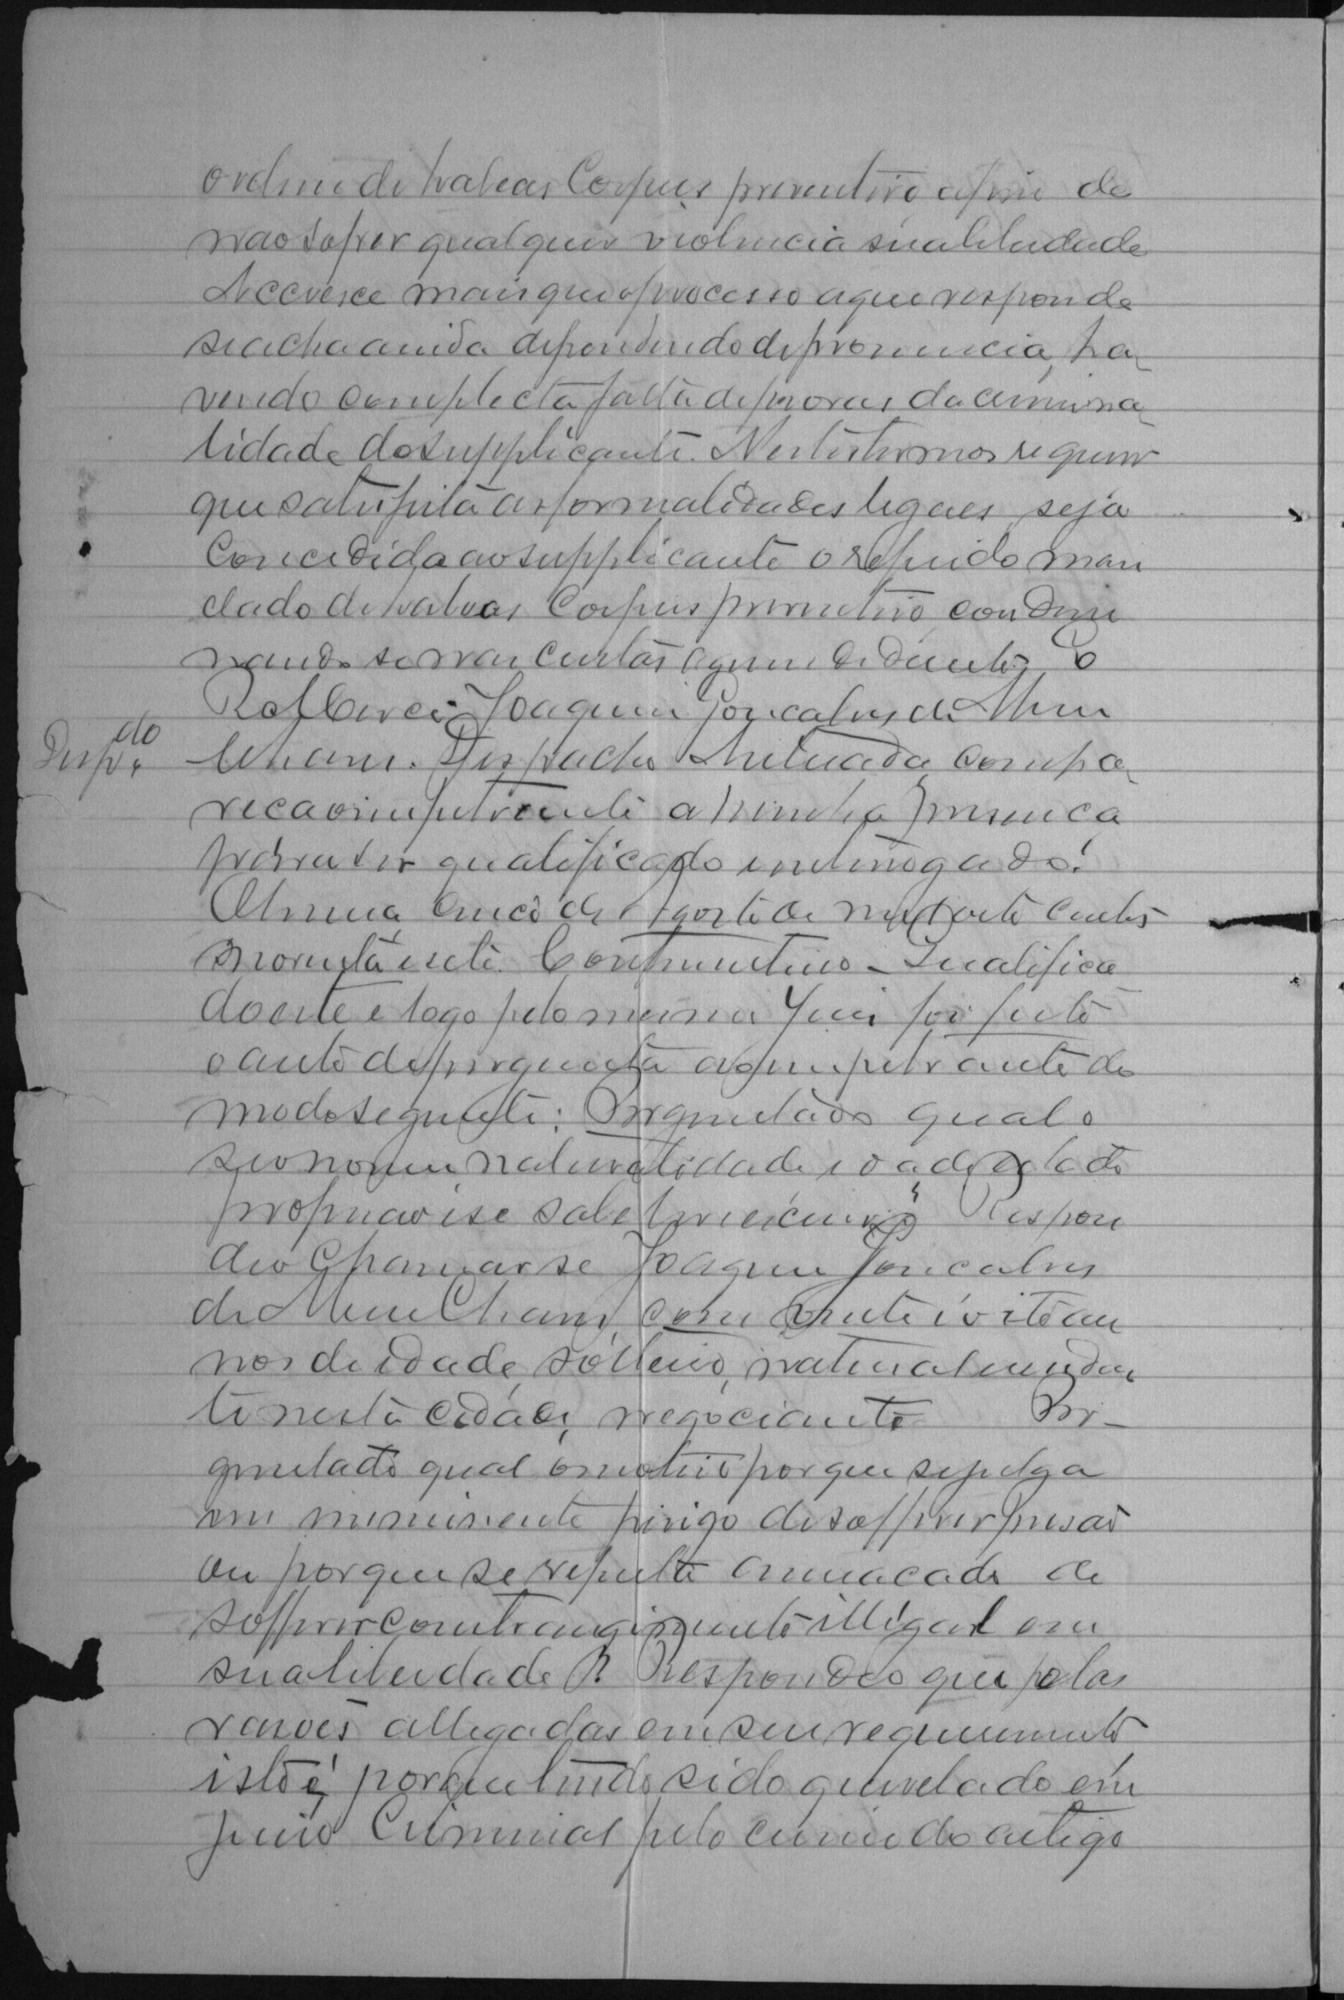 ordem de habeas Corpus preventivo afim de
não sofrer qualquer violencia sua liberdade
Accresce mais que o processo a que responde
se acha ainda dependendo de pronuncia, ha-
vendo complecta falta de provas da crimina-
lidade do supplicante. Nestes termos requer
que satisfeita as formalidades legaes seja
Concedida ao supplicante o referido man
dado de habeas Corpus preventivo condem
nando se nas custas a quem de direito. E
R. Mercê Joaquim Gonçalves de
Desp.do
Despacho Autuada, compa-
reça o impetrante a minha presença
para ser qualificado e interrogado.
cinco de Agosto de mil oito centos
e noventa e sete. Qualifica
do este e logo pelo mesmo Juiz foi feito
o auto de pergunta ao impetrante do
modo seguinte: Perguntado qual o
seo nome naturalidade idade estado
profissão e se sabe ler e escrever Respon
deo Chamar se Joaquim Gonçalves
de com vinte e oito an
nos de idade, solteiro, natural
te nesta cidade, negociante Per-
guntado qual o motivo por que se julga
em imminente perigo de soffrer prisão
ou por que se reputa ameaçado de
soffrer constrangimento illegal em
sua liberdade R. Respondeo que pelas
rasões allegadas em seu requerimento
isto é, porque tendo sido querelado em
juiso Criminal pelo crime do artigo